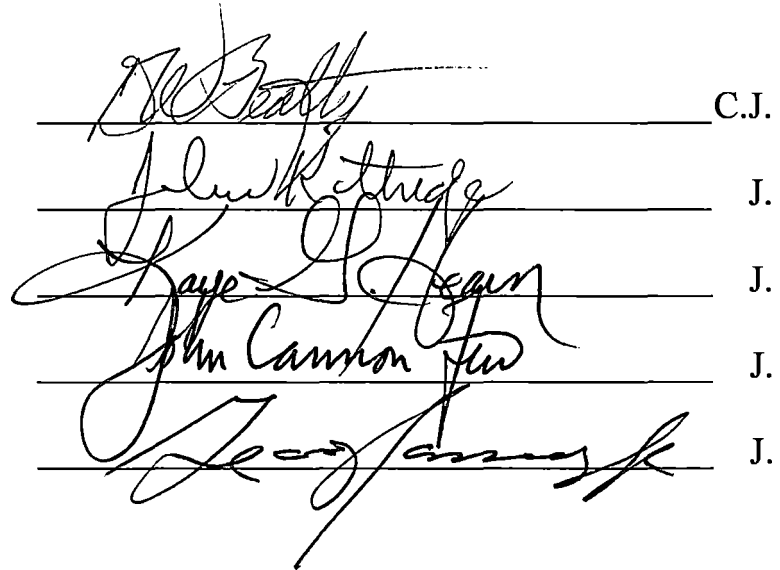 Beatty C.J.
John Kittredge J.
Kaye G. Hearn J.
John Cannon Few J.
George James Jr J.